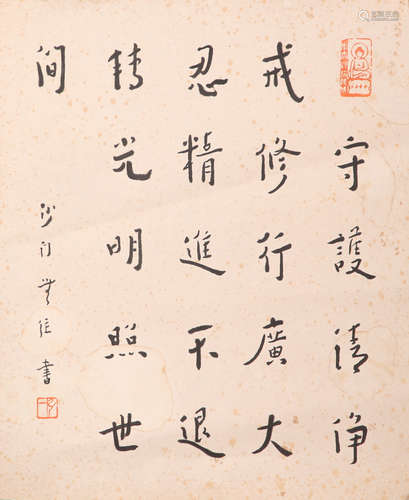 守護清淨
戒修行廣大
忍精進不退
轉光明照世
間
沙門書